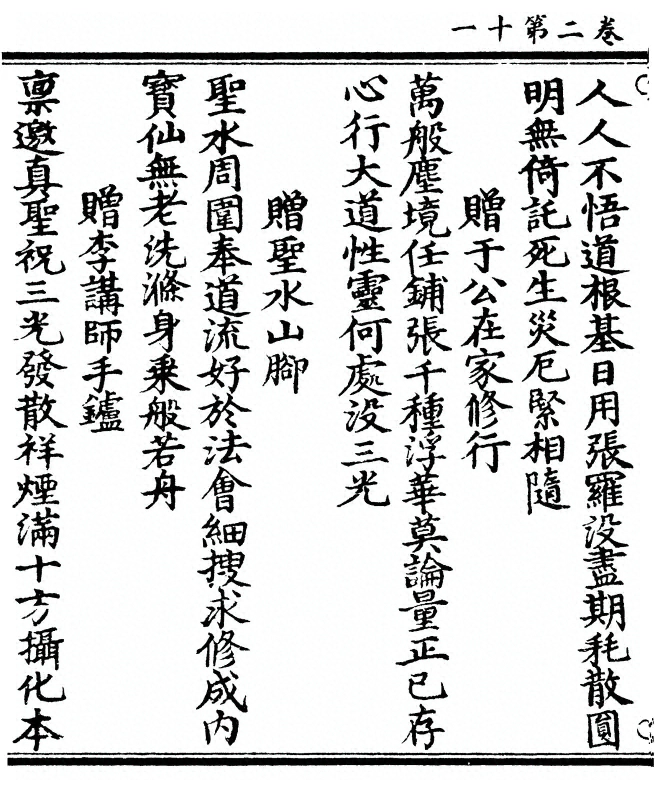 卷二第十一
人人不悟道根基日用張羅没盡期耗散圓
明無倚託死生災厄緊相隨
贈于公在家修行
萬般塵境任鋪張千種浮華莫論量正己存
心行大道性靈何處没三光
贈聖水山腳
聖水周圍奉道流好於法會細搜求修成内
寳仙無老洗滌身乗般若舟
贈李講師手鑪
禀邀真聖祝三光發散祥煙滿十方攝化本